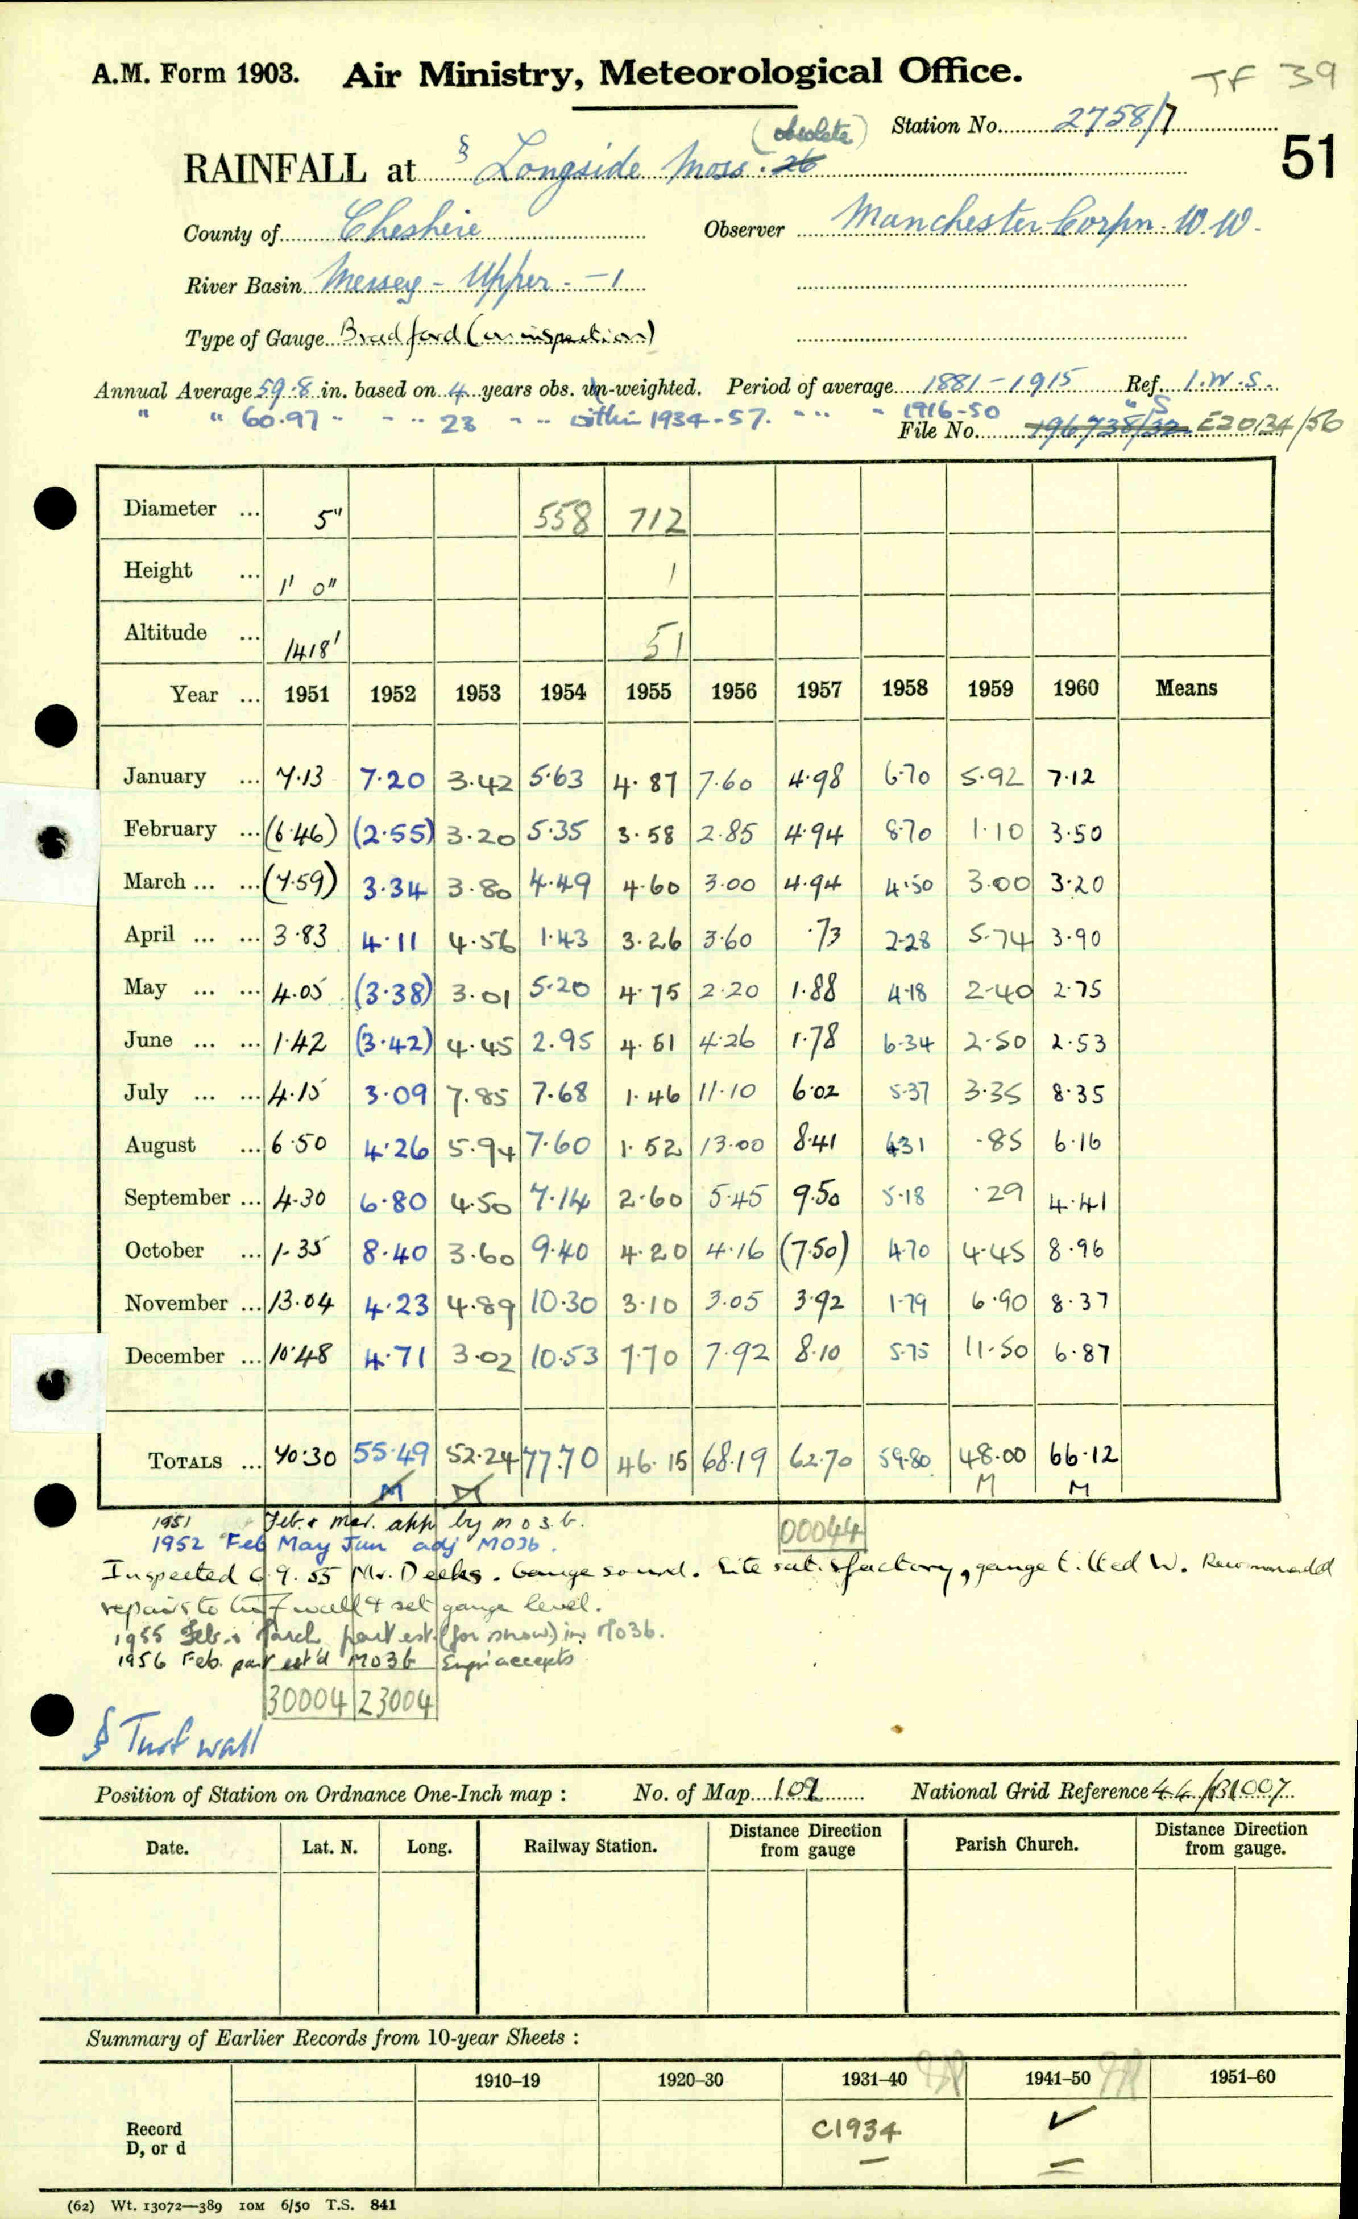 A.M. Form 1903. Air Ministry, Meteorological Office. TF 39
(obsolete) Station No. 2758/7
51
RAINFALL at § Longside Moss. 26
County of Cheshire Observer Manchester Corpn. W.W.
River Basin Mersey - Upper - 1
Type of Gauge Bradford (on inspection)
Annual Average 59.8 in. based on 4 years obs. un-weighted. Period of average 1881-1915 Ref. I.W.S.
" " 60.97 - - - 23 - - within 1934-57. - - - 1916-50 " S
File No. 196738/32 E20134/56
Diameter ... 5" 558 712
Height ... 1' 0" 1
Altitude ... 1418' 51
Year ... 1951 1952 1953 1954 1955 1956 1957 1958 1959 1960 Means
January ... 7.13 7.20 3.42 5.63 4.87 7.60 4.98 6.70 5.92 7.12
February ... (6.46) (2.55) 3.20 5.35 3.58 2.85 4.94 8.70 1.10 3.50
March ... ... (7.59) 3.34 3.80 4.49 4.60 3.00 4.94 4.50 3.00 3.20
April ... ... 3.83 4.11 4.56 1.43 3.26 3.60 .73 2.28 5.74 3.90
May ... ... 4.05 (3.38) 3.01 5.20 4.75 2.20 1.88 4.18 2.40 2.75
June ... ... 1.42 (3.42) 4.45 2.95 4.51 4.26 1.78 6.34 2.50 2.53
July ... ... 4.15 3.09 7.85 7.68 1.46 11.10 6.02 5.37 3.35 8.35
August ... 6.50 4.26 5.94 7.60 1.52 13.00 8.41 4.31 .85 6.16
September ... 4.30 6.80 4.50 7.14 2.60 5.45 9.50 5.18 .29 4.41
October ... 1.35 8.40 3.60 9.40 4.20 4.16 (7.50) 4.70 4.45 8.96
November ... 13.04 4.23 4.89 10.30 3.10 3.05 3.92 1.79 6.90 8.37
December ... 10.48 4.71 3.02 10.53 7.70 7.92 8.10 5.75 11.50 6.87
TOTALS ... 70.30 55.49 52.24 77.70 46.15 68.19 62.70 59.80 48.00 66.12
M M M M
1951 Feb. & Mar. app by M O 3 b.
00044
1952 Feb May Jun adj MO3b.
Inspected 6.9.55 Mr. Deeks. Gauge sound. Site satisfactory, gauge tilted W. Recommended
repairs to turf wall & set gauge level.
1955 Feb. & March part est. (for snow) in MO3b.
1956 Feb. part est'd MO3b Engr accepts
30004 23004
§ Turf wall
Position of Station on Ordnance One-Inch map : No. of Map 109 National Grid Reference 44/131007
Date. Lat. N. Long. Railway Station. Distance Direction from gauge Parish Church. Distance Direction from gauge.
Summary of Earlier Records from 10-year Sheets :
1910–19 1920–30 1931–40 1941–50 1951–60
Record C1934 ✓
D, or d
(62) Wt. 13072—389 10M 6/50 T.S. 841